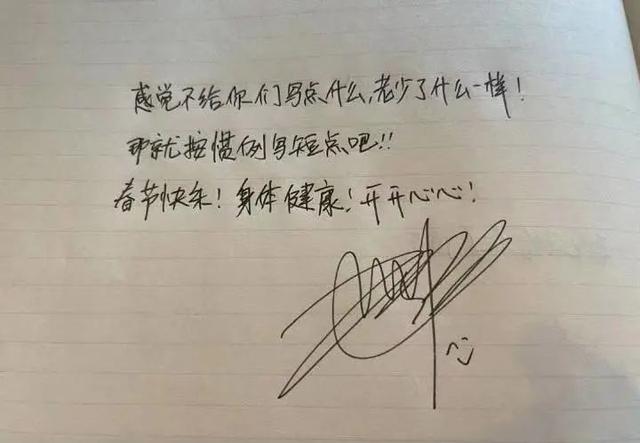 感觉不给你们写点什么,老少了什么一样!
那就按惯例写短点吧!!
春节快乐!身体健康!开开心心!